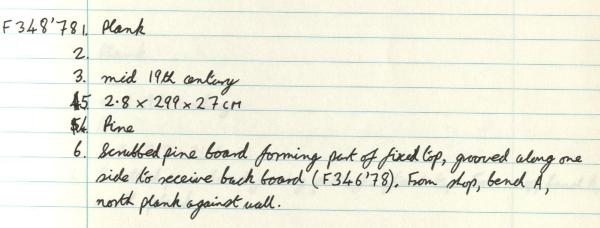 F348'78 1. Plank
2.
3. mid 19th century
5 2.8 x 299 x 27 cm
4 Pine
6. Scrubbed pine board forming part of fixed top, grooved along one
side to receive back board (F346'78). From shop, bend A,
north plank against wall.